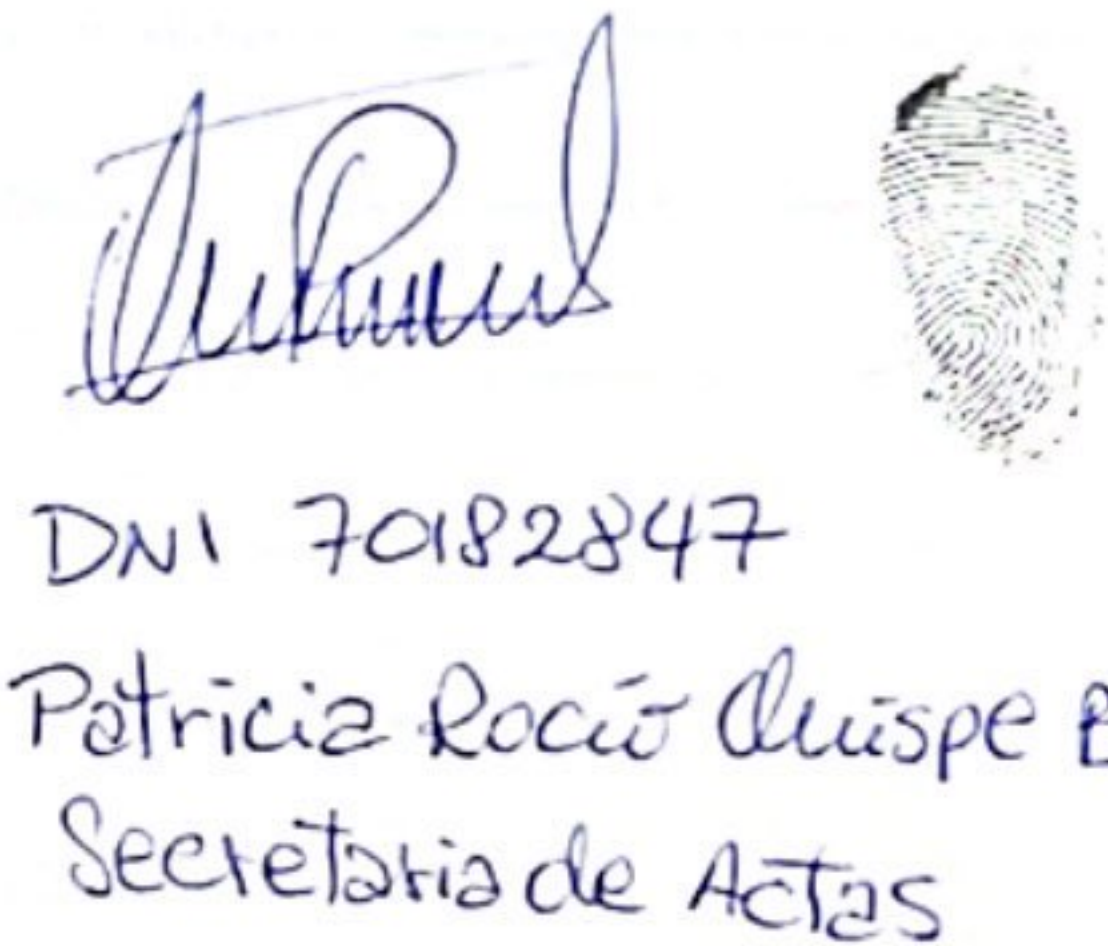 DNI 70182847
Patricia Rocío Quispe
Secretaria de Actas